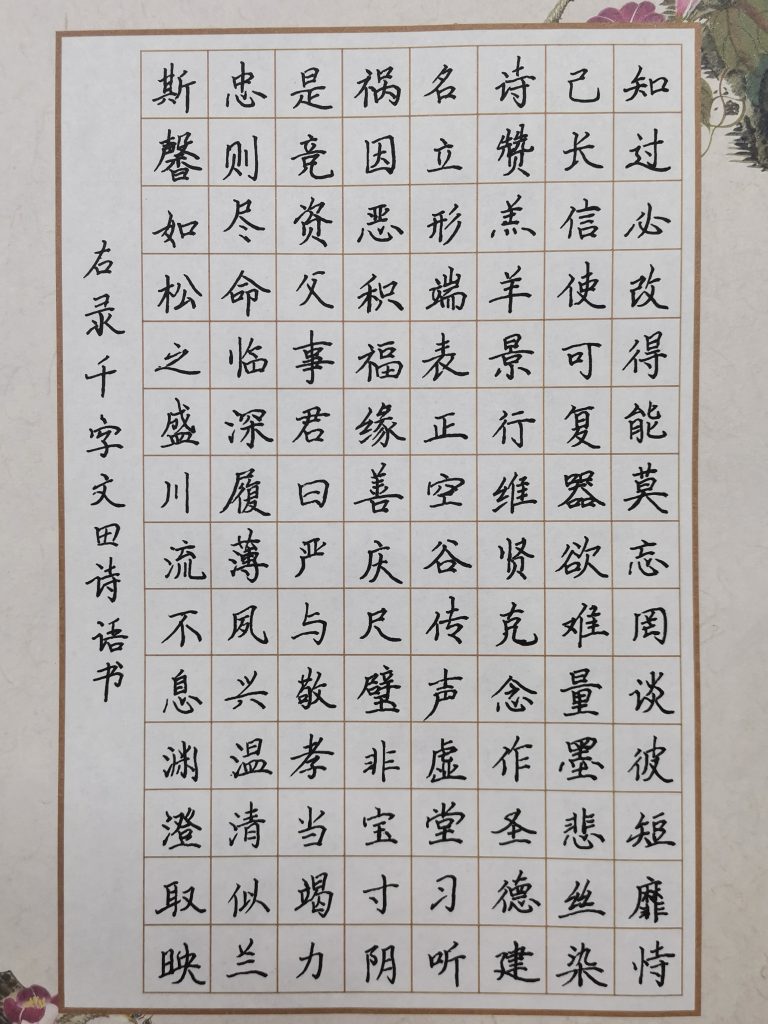 知过必改得能莫忘罔谈彼短靡恃
己长信使可复器欲难量墨悲丝染
诗赞羔羊景行维贤克念作圣德建
名立形端表正空谷传声虚堂习听
祸因恶积福缘善庆尺璧非宝寸阴
是竞资父事君曰严与敬孝当竭力
忠则尽命临深履薄夙兴温清似兰
斯馨如松之盛川流不息渊澄取映
右录千字文田诗语书